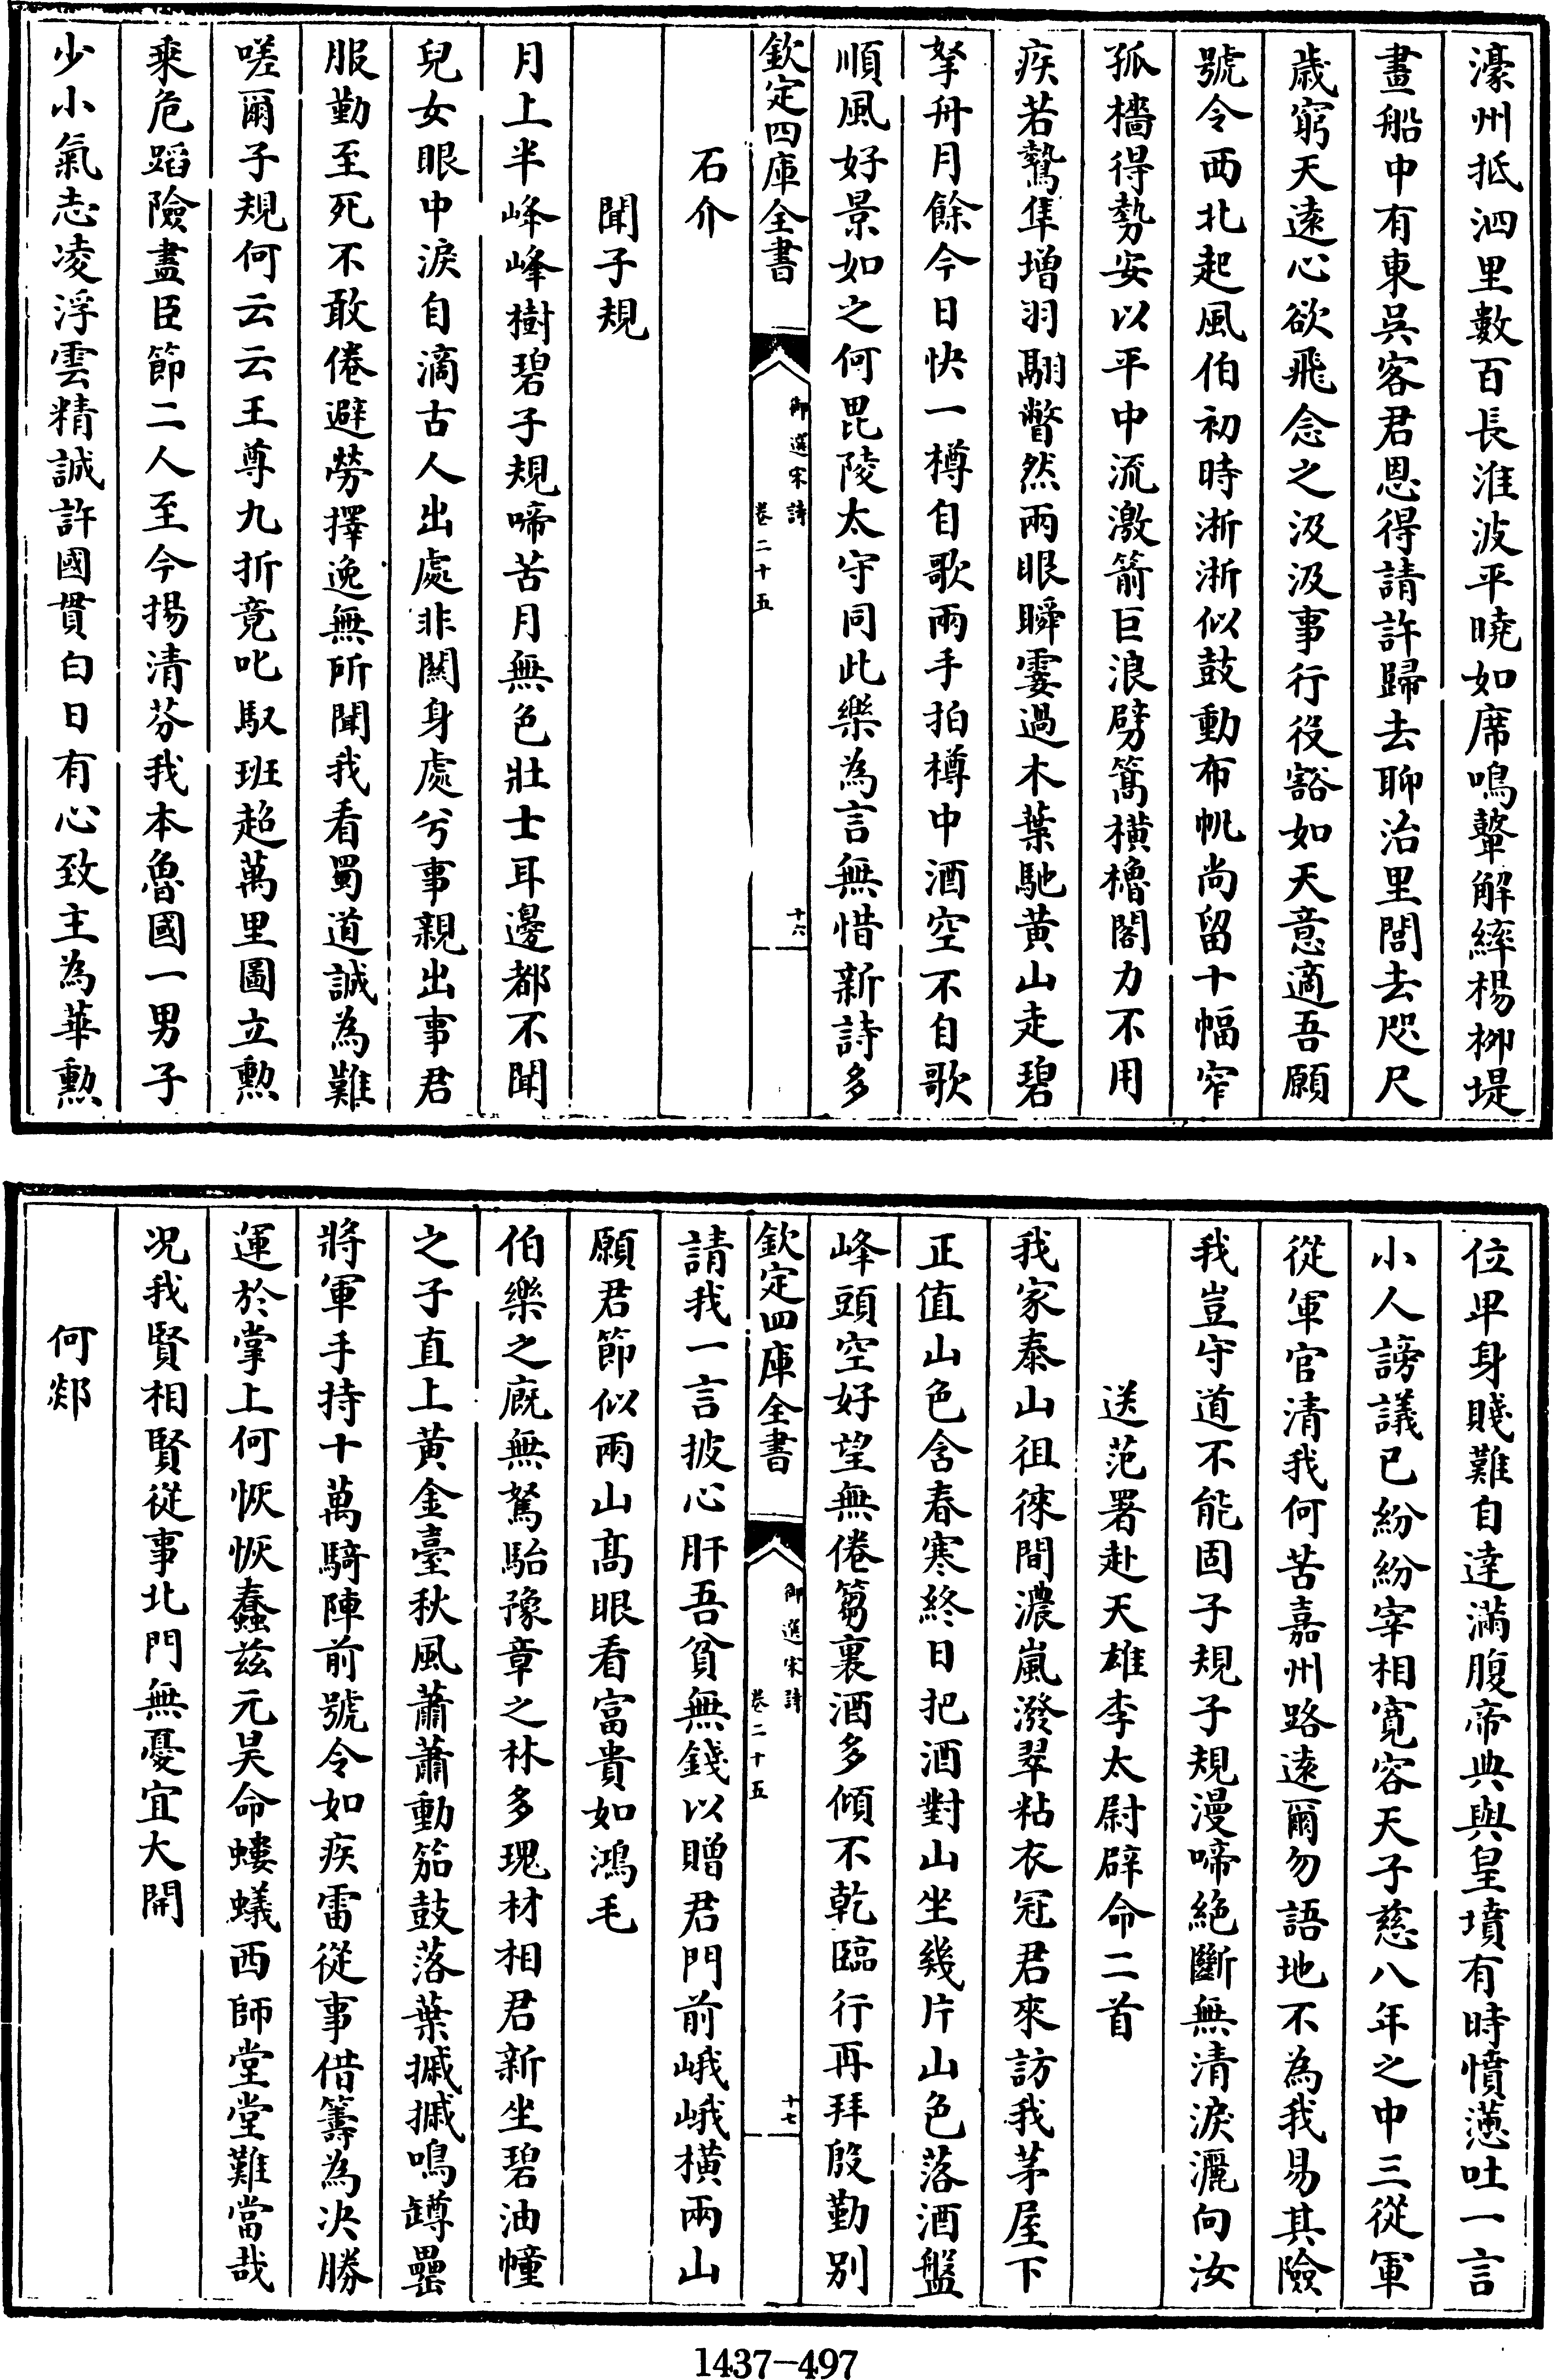 濠州抵泗里數百長淮波平曉如席鳴鼙解䌫楊柳堤
畫船中有東吳客君恩得請許歸去聊治里閭去咫尺
歲窮天遠心欲飛念之汲汲事行役豁如天意適吾願
號令西北起風伯初時淅淅似鼓動布帆尚留十幅窄
孤檣得勢安以平中流激箭巨浪劈篙橫櫓閣力不用
疾若鷙隼增羽翮瞥然兩眼瞬霎過木葉馳黃山走碧
拏舟月餘今日快一樽自歌兩手拍樽中酒空不自歌
順風好景如之何毘陵太守同此樂為言無惜新詩多
欽定四庫全書
御選宋詩
卷二十五
十六
石介
聞子規
月上半峰峰樹碧子規啼苦月無色壯士耳邊都不聞
兒女眼中淚自滴古人出處非關身處兮事親出事君
服勤至死不敢倦避勞擇逸無所聞我看蜀道誠為難
嗟爾子規何云云王尊九折竟叱馭班超萬里圖立勲
乘危蹈險盡臣節二人至今揚清芬我本魯國一男子
少小氣志凌浮雲精誠許國貫白日有心致主為華勲
位卑身賤難自達滿腹帝典與皇墳有時憤懣吐一言
小人謗議已紛紛宰相寛容天子慈八年之中三從軍
從軍官清我何苦嘉州路遠爾勿語地不為我易其險
我豈守道不能固子規子規漫啼絶斷無清淚灑向汝
送范署赴天雄李太尉辟命二首
我家泰山徂徠間濃嵐潑翠粘衣冠君來訪我茅屋下
正值山色含春寒終日把酒對山坐幾片山色落酒盤
峰頭空好望無倦篘裏酒多傾不乾臨行再拜殷勤別
欽定四庫全書
御選宋詩
卷二十五
十七
請我一言披心肝吾貧無錢以贈君門前峨峨橫兩山
願君節似兩山高眼看富貴如鴻毛
伯樂之廐無駑駘豫章之林多瑰材相君新坐碧油幢
之子直上黃金臺秋風蕭蕭動笳鼓落葉摵摵鳴罇罍
將軍手持十萬騎陣前號令如疾雷從事借籌為決勝
運於掌上何恢恢蠢茲元昊命螻蟻西師堂堂難當哉
况我賢相賢從事北門無憂宜大開
何郯
1437-497